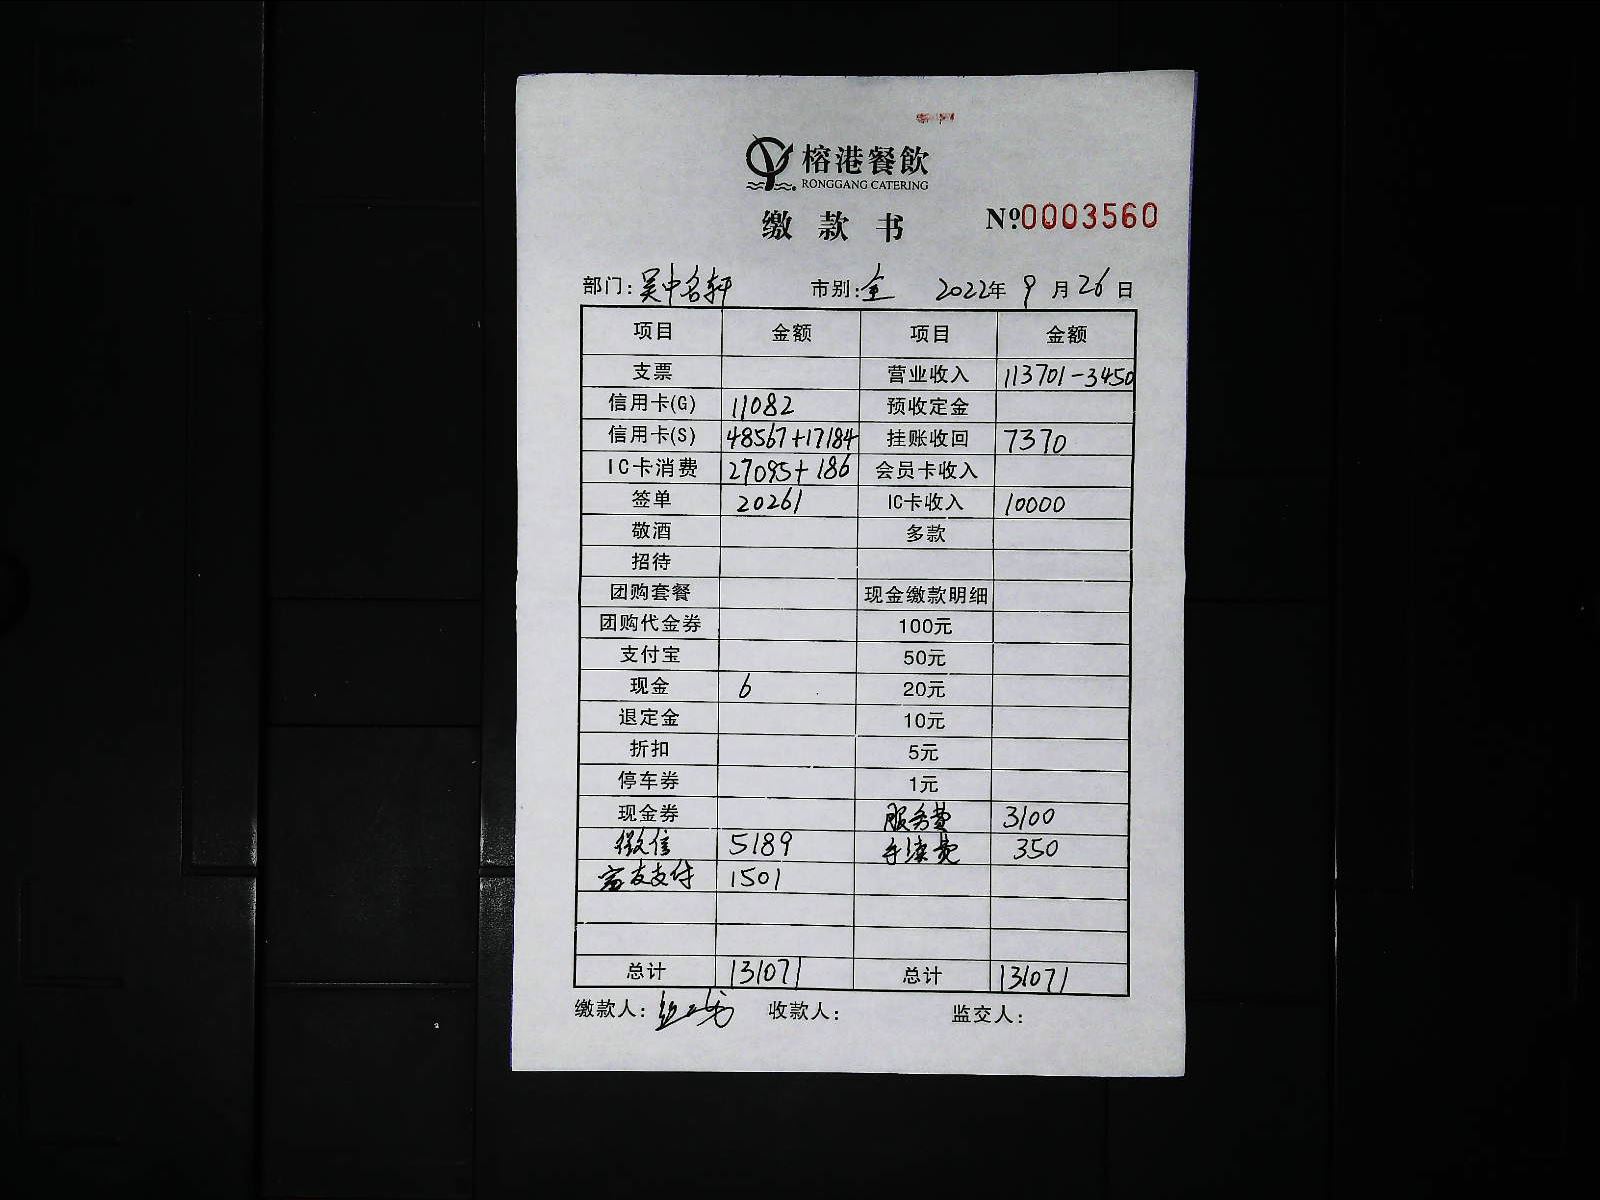 榕港餐飲
RONGGANG CATERING
缴款书 Nº0003560
部门:吴中名轩 市别:全 2022年9月26日
项目 金额 项目 金额
支票 营业收入 113701-3450
信用卡(G) 11082 预收定金
信用卡(S) 48567+17184 挂账收回 7370
IC卡消费 27095+186 会员卡收入
签单 20261 IC卡收入 10000
敬酒 多款
招待
团购套餐 现金缴款明细
团购代金券 100元
支付宝 50元
现金 6 20元
退定金 10元
折扣 5元
停车券 1元
现金券 服务费 3100
微信 5189 手续费 350
富友支付 1501
总计 131071 总计 131071
缴款人: 收款人: 监交人: